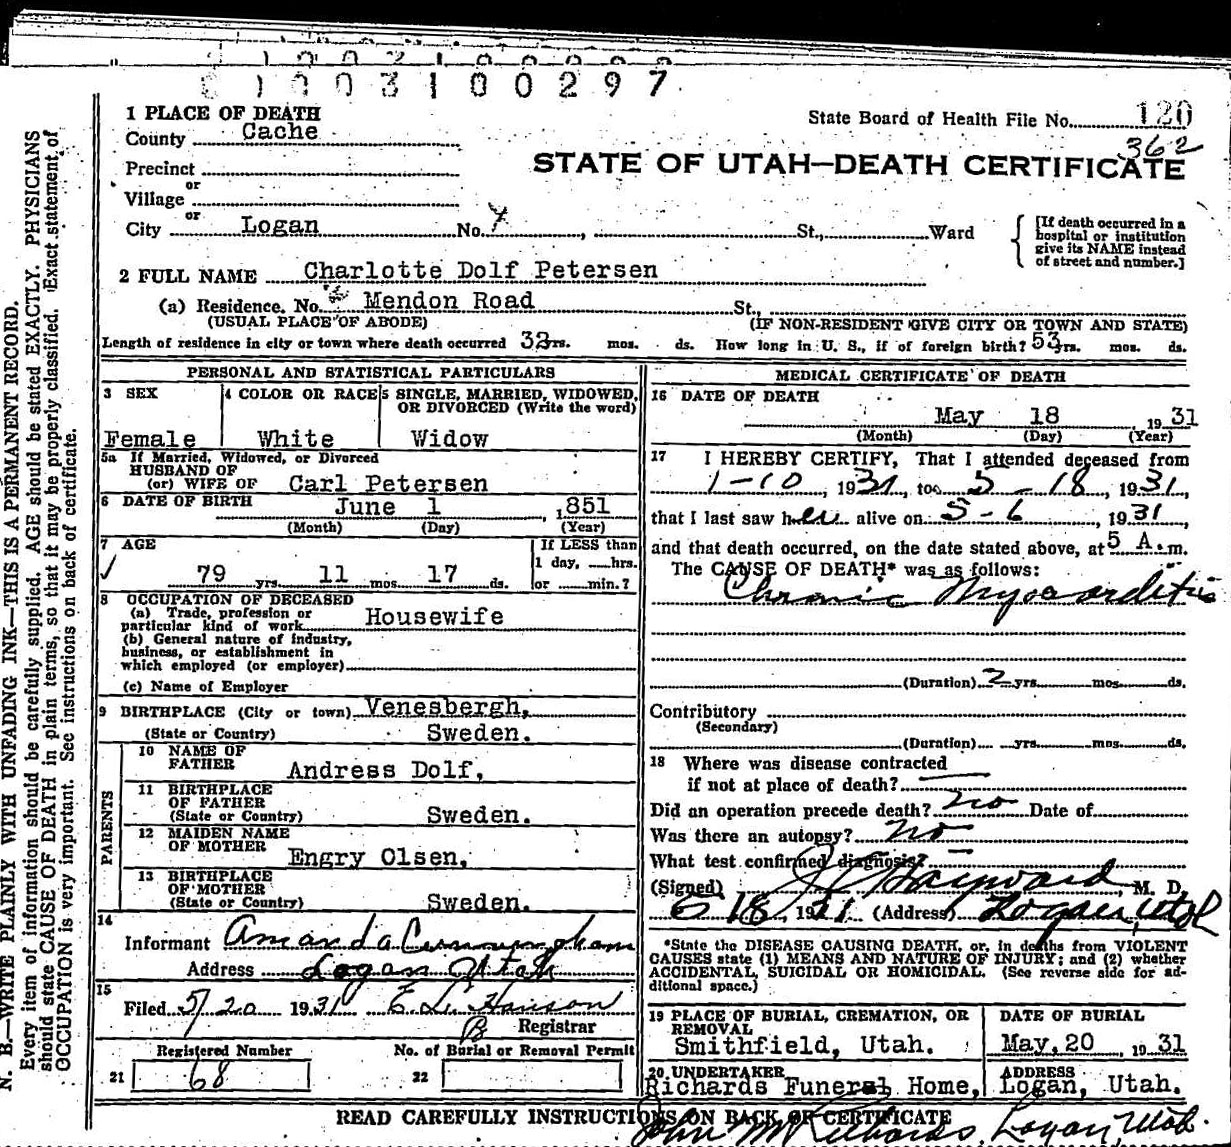 1003100297
1 PLACE OF DEATH
State Board of Health File No. 120
County Cache
362
STATE OF UTAH—DEATH CERTIFICATE
Precinct
or
Village
or
City Logan No. St., Ward
[If death occurred in a
hospital or institution
give its NAME instead
of street and number.]
2 FULL NAME Charlotte Dolf Petersen
(a) Residence, No. Mendon Road St.,
(USUAL PLACE OF ABODE) (IF NON-RESIDENT GIVE CITY OR TOWN AND STATE)
Length of residence in city or town where death occurred 32 yrs. mos. ds. How long in U. S., if of foreign birth? 53 yrs. mos. ds.
PERSONAL AND STATISTICAL PARTICULARS
3 SEX 4 COLOR OR RACE 5 SINGLE, MARRIED, WIDOWED,
OR DIVORCED (Write the word)
Female White Widow
5a If Married, Widowed, or Divorced
HUSBAND OF
(or) WIFE OF Carl Petersen
6 DATE OF BIRTH June 1 1851
(Month) (Day) (Year)
7 AGE If LESS than
1 day, hrs.
79 yrs. 11 mos. 17 ds. or min.?
8 OCCUPATION OF DECEASED
(a) Trade, profession or
particular kind of work Housewife
(b) General nature of industry,
business, or establishment in
which employed (or employer)
(c) Name of Employer
9 BIRTHPLACE (City or town) Venesbergh,
(State or Country) Sweden.
PARENTS
10 NAME OF
FATHER Andress Dolf,
11 BIRTHPLACE
OF FATHER
(State or Country) Sweden.
12 MAIDEN NAME
OF MOTHER Engry Olsen,
13 BIRTHPLACE
OF MOTHER
(State or Country) Sweden.
14
Informant Amanda Cunningham
Address Logan Utah
15
Filed 5/20 1931 E. L. Hanson
Registrar
Registered Number No. of Burial or Removal Permit
21 68 22
MEDICAL CERTIFICATE OF DEATH
16 DATE OF DEATH
May 18 1931
(Month) (Day) (Year)
17 I HEREBY CERTIFY, That I attended deceased from
1-10, 1931, to 5-18, 1931,
that I last saw her alive on 5-6, 1931,
and that death occurred, on the date stated above, at 5 A.m.
The CAUSE OF DEATH* was as follows:
Chronic Myocarditis
(Duration) 2 yrs. mos. ds.
Contributory
(Secondary)
(Duration) yrs. mos. ds.
18 Where was disease contracted
if not at place of death?
Did an operation precede death? no Date of
Was there an autopsy? no
What test confirmed diagnosis?
(Signed) Hayward M. D.
6 18, 1931 (Address) Logan, Utah
*State the DISEASE CAUSING DEATH, or, in deaths from VIOLENT
CAUSES state (1) MEANS AND NATURE OF INJURY; and (2) whether
ACCIDENTAL, SUICIDAL OR HOMICIDAL. (See reverse side for ad-
ditional space.)
19 PLACE OF BURIAL, CREMATION, OR
REMOVAL
Smithfield, Utah.
DATE OF BURIAL
May, 20, 1931
20 UNDERTAKER
Richards Funeral Home,
ADDRESS
Logan, Utah.
READ CAREFULLY INSTRUCTIONS ON BACK OF CERTIFICATE
John M Richards Logan Utah.
N. B.—WRITE PLAINLY WITH UNFADING INK—THIS IS A PERMANENT RECORD.
Every item of information should be carefully supplied. AGE should be stated EXACTLY. PHYSICIANS
should state CAUSE OF DEATH in plain terms, so that it may be properly classified. Exact statement of
OCCUPATION is very important. See instructions on back of certificate.